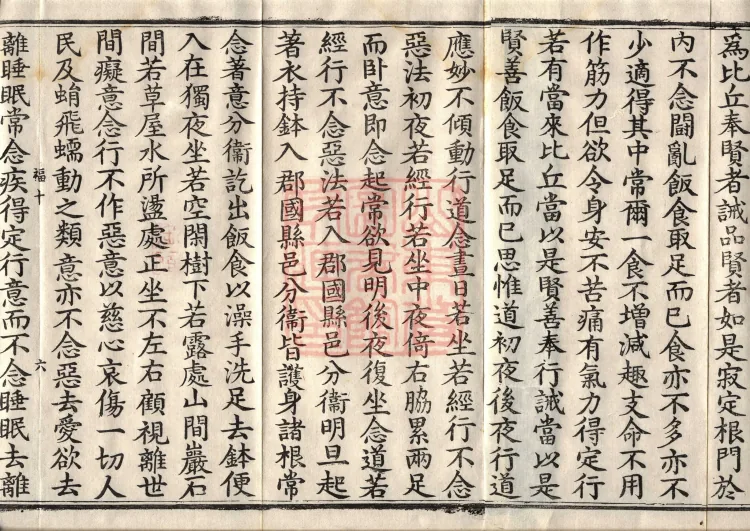 爲比丘奉賢者誡品賢者如是寂定根門於
內不念鬪亂飯食取足而已食亦不多亦不
少適得其中常爾一食不增減趣支命不用
作筋力但欲令身安不苦痛有氣力得定行
若有當來比丘當以是賢善奉行誡當以是
賢善飯食取足而已思惟道初夜後夜行道
應妙不傾動行道念晝日若坐若經行不念
惡法初夜若經行若坐中夜倚右脇累兩足
而卧意即念起常欲見明後夜復坐念道若
經行不念惡法若入郡國縣邑分衞明旦起
著衣持鉢入郡國縣邑分衞皆護身諸根常
念著意分衞訖出飯食以澡手洗足去鉢便
入在獨夜坐若空閑樹下若露處山間巖石
間若草屋水所盪處正坐不左右顧視離世
間癡意念行不作惡意以慈心哀傷一切人
民及蛸飛蠕動之類意亦不念惡去愛欲去
福十 六
離睡眠常念疾得定行意而不念睡眠去離